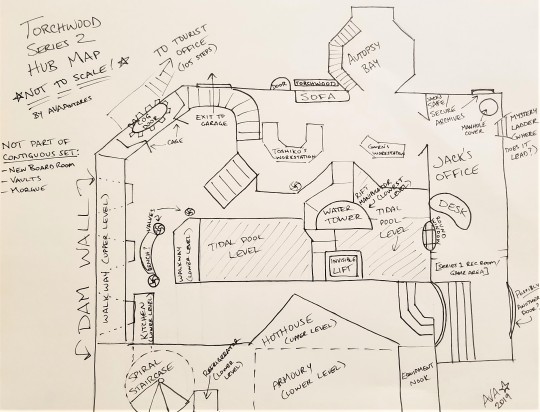 TORCHWOOD
SERIES 2
HUB MAP
☆NOT TO SCALE!☆
BY AVA
NOT PART OF
CONTIGUOUS SET:
- NEW BOARDROOM
- VAULTS
- MORGUE
TO TOURIST
OFFICE
(105 STEPS)
COG
DOOR
CAGE
EXIT TO
GARAGE
DOOR
TORCHWOOD
SOFA
AUTOPSY
BAY
TOSHIKO'S
WORKSTATION
OWEN'S
WORKSTATION
JACK'S
SAFE/
SECURE
ARCHIVES
MANHOLE
COVER
MYSTERY
LADDER
(WHERE
DOES IT
LEAD?)
JACK'S
OFFICE
DESK
ROUND
WINDOW
RIFT
MANIPULATOR
(LOWEST
LEVEL)
WATER
TOWER
TIDAL
POOL
LEVEL
INVISIBLE
LIFT
TIDAL POOL
LEVEL
WALKWAY
(LOWER LEVEL)
VALVES
BENCH?
DAM WALL
WALKWAY (UPPER LEVEL)
KITCHEN
(LOWER LEVEL)
[SERIES 1 REC ROOM/
GAME AREA]
POSSIBLY
ANOTHER
DOOR?
HOTHOUSE
(UPPER LEVEL)
SPIRAL
STAIRCASE
REFRIGERATOR
(LOWER
LEVEL)
ARMOURY
(LOWER LEVEL)
EQUIPMENT
NOOK
AVA☆
2019